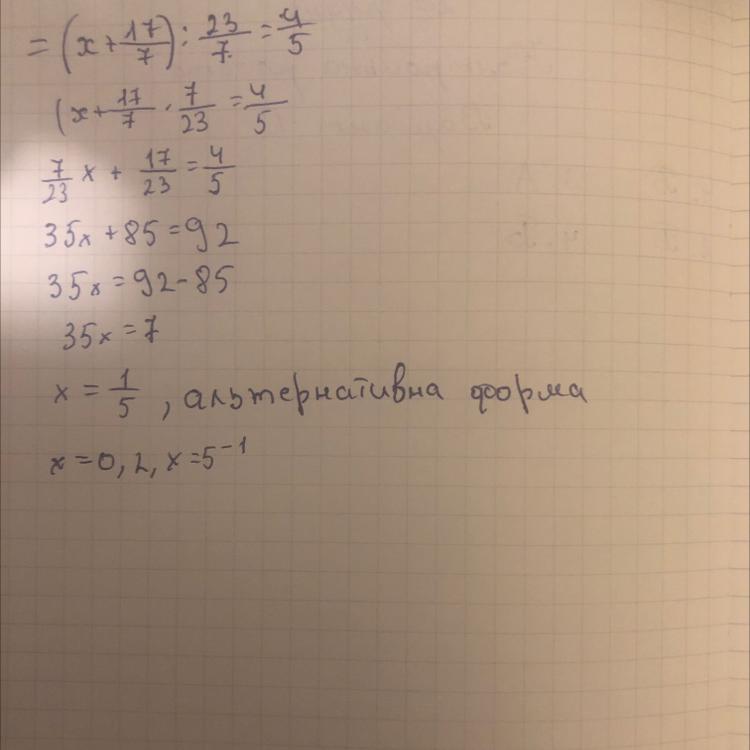 = (x + 17/7) : 23/7 = 4/5
(x + 17/7 · 7/23 = 4/5
7/23 x + 17/23 = 4/5
35x + 85 = 92
35x = 92 - 85
35x = 7
x = 1/5 , альтернативна форма
x = 0,2, x = 5⁻¹